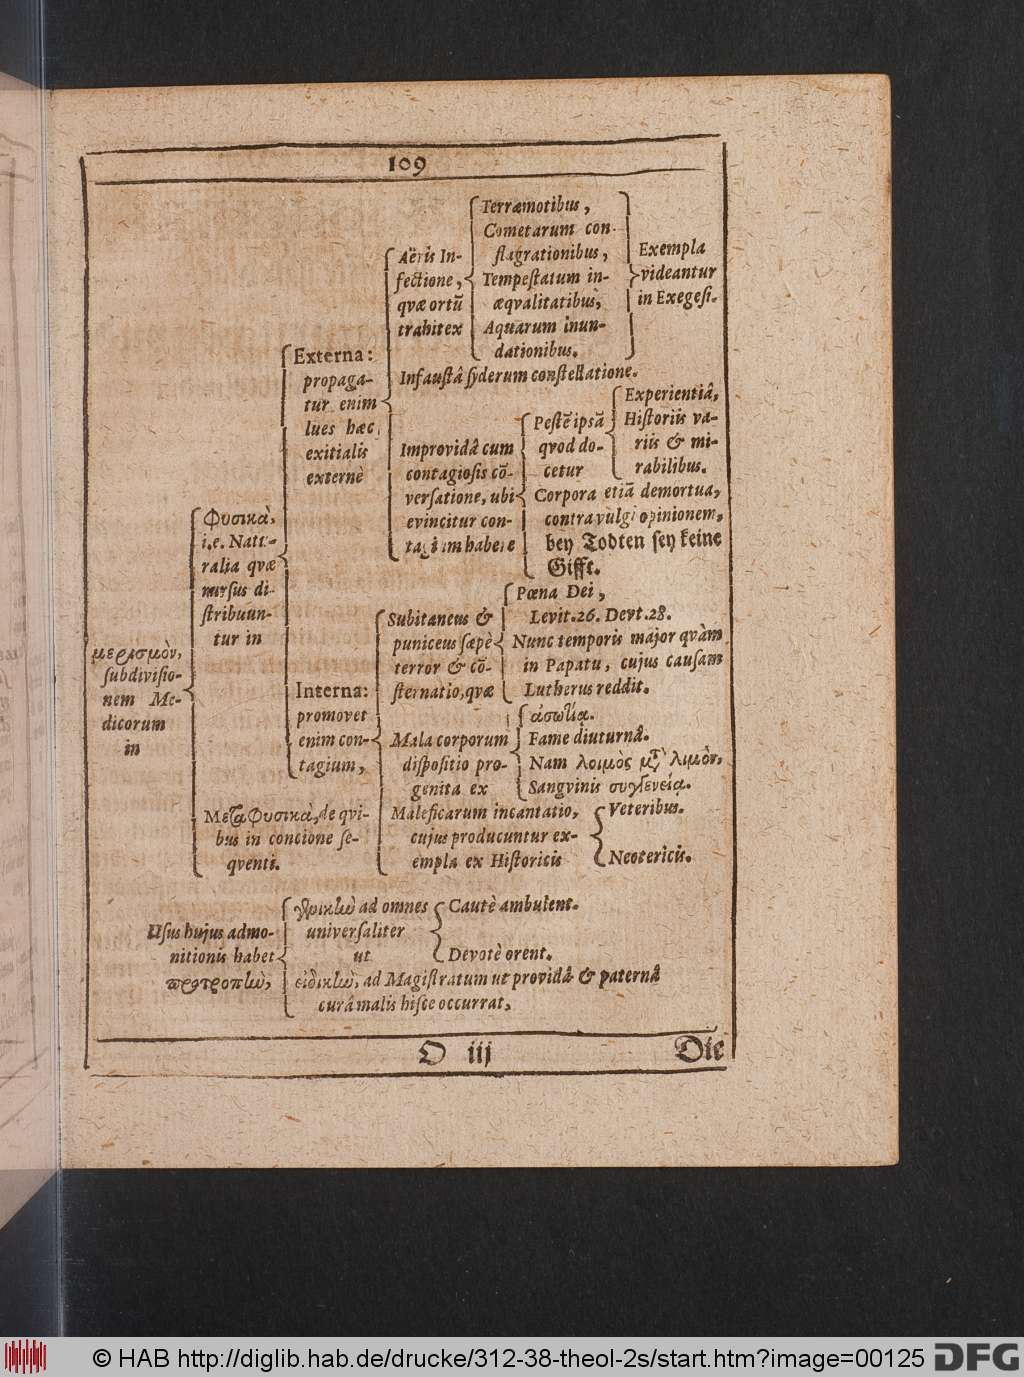 109
μερισμὸν,
subdivisio-
nem Me-
dicorum
in
Φυσικὰ,
i.e. Natu-
ralia quæ
rursus di-
stribuun-
tur in
Externa:
propaga-
tur enim
lues hæc
exitialis
externè
Aëris In-
fectione,
qvæ ortū
trahit ex
Terræmotibus,
Cometarum con-
flagrationibus,
Tempestatum in-
æqvalitatibus,
Aquarum inun-
dationibus.
Exempla
videantur
in Exegesi.
Infaustâ syderum constellatione.
Improvidâ cum
contagiosis cō-
versatione, ubi
evincitur con-
tagium habere
Pestē ipsā
qvod do-
cetur
Experientiâ,
Historiis va-
riis & mi-
rabilibus.
Corpora etiā demortua,
contra vulgi opinionem,
bey Todten sey keine
Gifft.
Interna:
promovet
enim con-
tagium,
Subitaneus &
puniceus sæpè
terror & cō-
sternatio, qvæ
Pœna Dei,
Levit. 26. Devt. 28.
Nunc temporis major qvàm
in Papatu, cujus causam
Lutherus reddit.
Mala corporum
dispositio pro-
genita ex
ἀσωτίᾳ.
Fame diuturnâ.
Nam λοιμὸς μετὰ λιμὸν,
Sangvinis συγγενείᾳ.
Maleficarum incantatio,
cujus producuntur ex-
empla ex Historicis
Veteribus.
Neotericis.
Μεταφυσικὰ, de qvi-
bus in concione se-
qventi.
Usus hujus admo-
nitionis habet
προτροπὼ,
γενικὼ ad omnes
universaliter
ut
Cautè ambulent.
Devotè orent.
εἰδικὼ, ad Magistratum ut providâ & paternâ
curâ malis hisce occurrat,
O iij
Die
© HAB http://diglib.hab.de/drucke/312-38-theol-2s/start.htm?image=00125
DFG